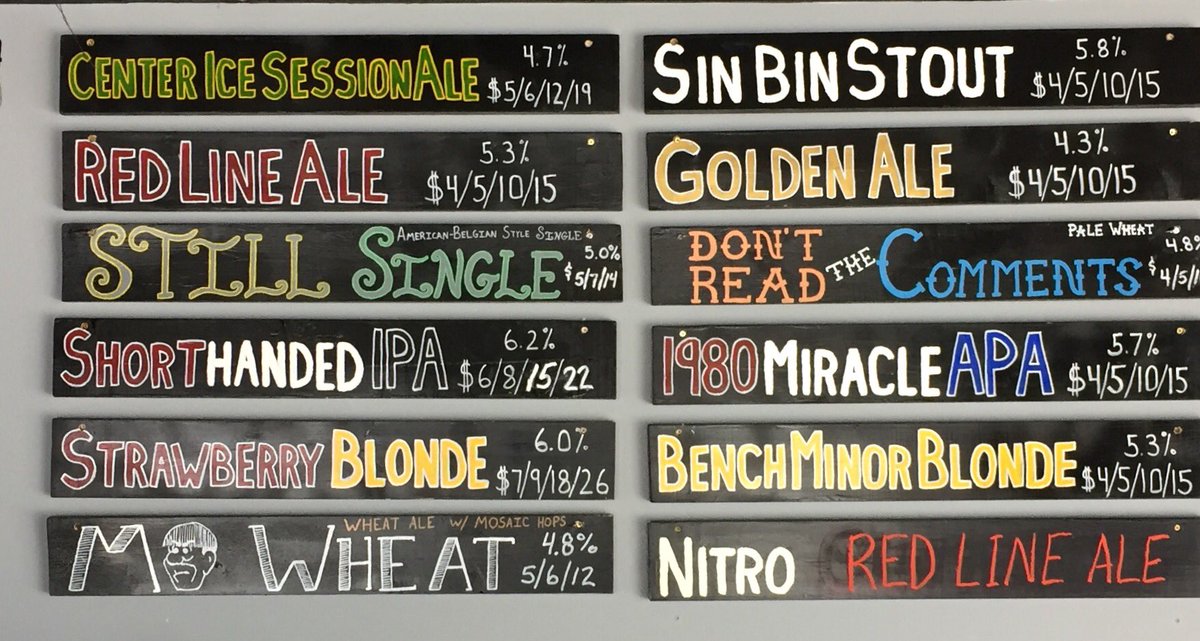 CENTER ICE SESSION ALE 4.7%
$5/6/12/19
RED LINE ALE 5.3%
$4/5/10/15
AMERICAN-BELGIAN STYLE SINGLE
STILL SINGLE 5.0%
$5/7/14
SHORTHANDED IPA 6.2%
$6/8/15/22
STRAWBERRY BLONDE 6.0%
$7/9/18/26
WHEAT ALE W/ MOSAIC HOPS
M WHEAT 4.8%
5/6/12
SIN BIN STOUT 5.8%
$4/5/10/15
GOLDEN ALE 4.3%
$4/5/10/15
PALE WHEAT
DON'T READ THE COMMENTS 4.8%
$4/5/1
1980 MIRACLE APA 5.7%
$4/5/10/15
BENCH MINOR BLONDE 5.3%
$4/5/10/15
NITRO RED LINE ALE